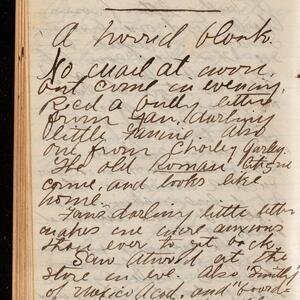 A horrid blank.
No mail at noon,
but come in evening,
Rec'd a bully letter
from Fan, darling
little Fannie. Also
one from Charley Gurley.
The old Roman Citizen
come, and looks like
home.
Fan's darling little letter
makes me more anxious
than ever to get back.
Saw Atwood at the
store in eve. Also "Smith"
of Mexico Acad. and